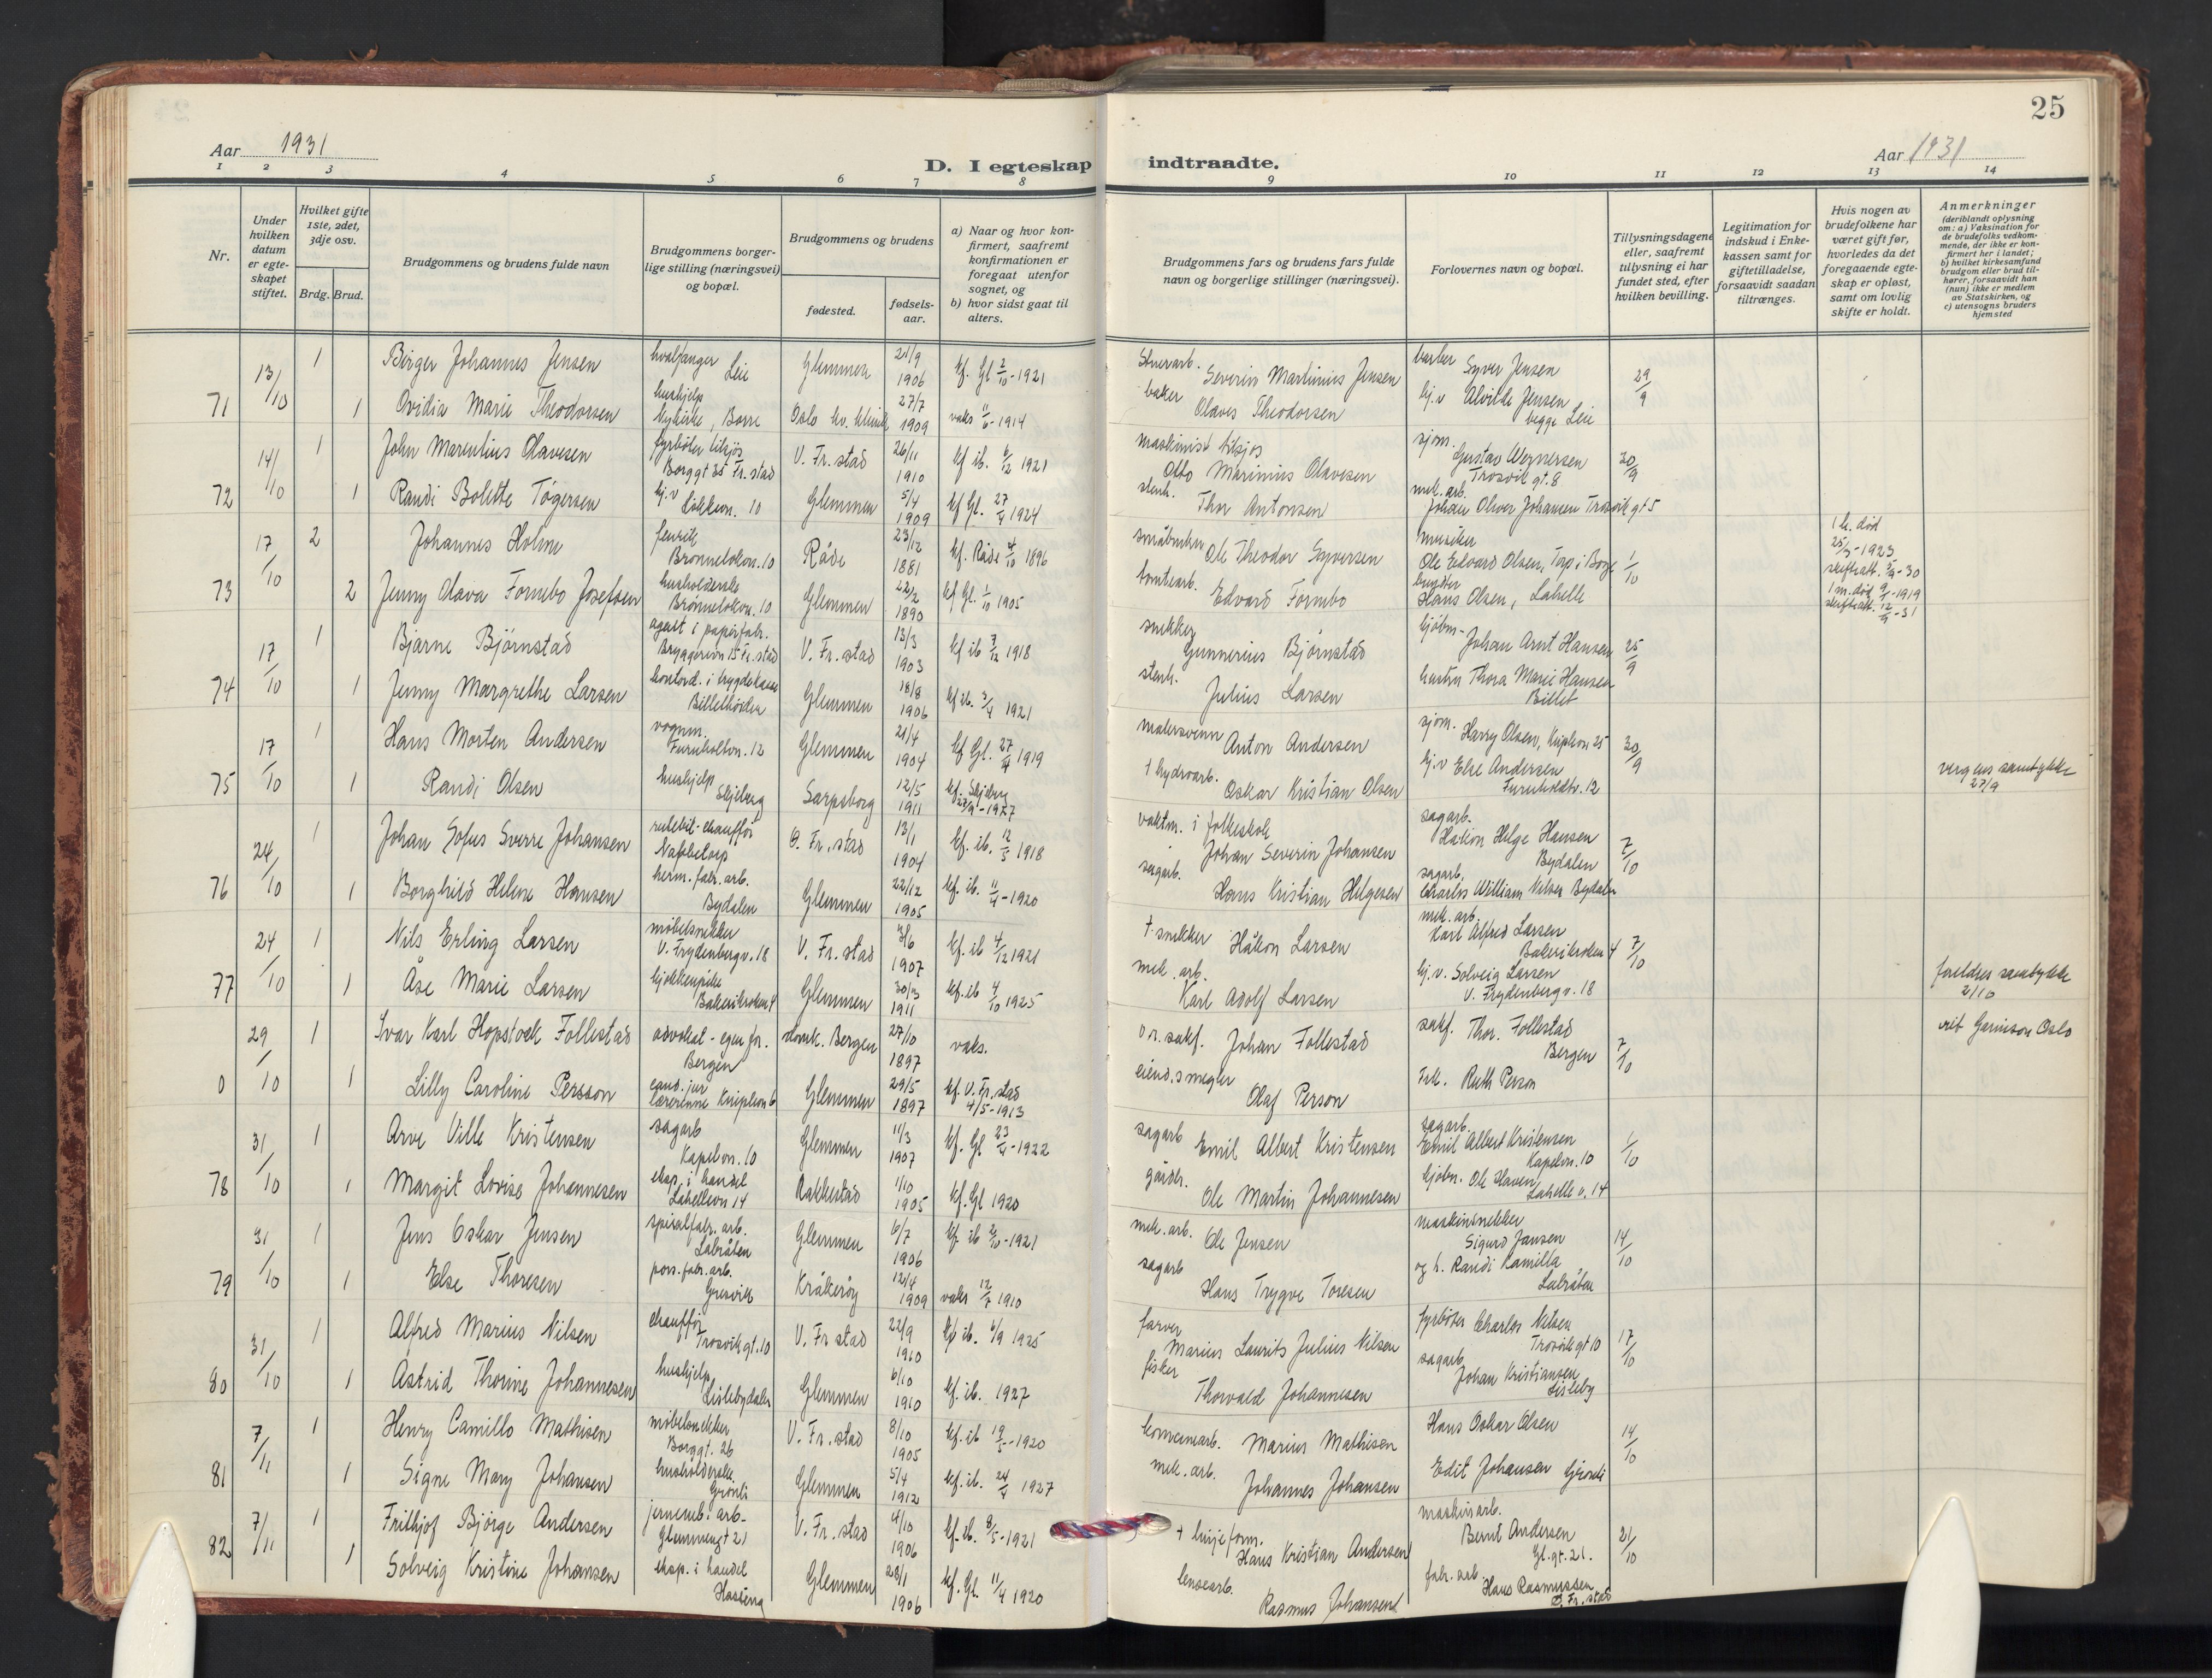 25
Aar 1931
D. I egteskap indtraadte.
Aar 1931
1 2 3 4 5 6 7 8 9 10 11 12 13 14
Nr.
Under hvilken datum er egte-skapet stiftet.
Hvilket gifte 1ste, 2det, 3dje osv.
Brdg. Brud.
Brudgommens og brudens fulde navn
Brudgommens borger-lige stilling (næringsvei) og bopæl.
Brudgommens og brudens
fødested.
fødsels-aar.
a) Naar og hvor kon-firmert, saafremt konfirmationen er foregaat utenfor sognet, og
b) hvor sidst gaat til alters.
Brudgommens fars og brudens fars fulde navn og borgerlige stillinger (næringsvei).
Forlovernes navn og bopæl.
Tillysningsdagene eller, saafremt tillysning ei har fundet sted, efter hvilken bevilling.
Legitimation for indskud i Enke-kassen samt for giftetilladelse, forsaavidt saadan tiltrænges.
Hvis nogen av brudefolkene har været gift før, hvorledes da det foregaaende egte-skap er opløst, samt om lovlig skifte er holdt.
Anmerkninger (deriblandt oplysning om: a) Vaksination for de brudefolks vedkom-mende, der ikke er kon-firmert her i landet; b) hvilket kirkesamfund brudgom eller brud til-hører, forsaavidt han (hun) ikke er medlem av Statskirken, og c) utensogns bruders hjemsted
71 13/10 1 Birger Johannes Jensen hvalfanger Leie Glemmen 21/9 1906 kf. Gl 2/10-1921 Severin Martinius Jensen barber Syver Jensen 29/9
1 Ovidia Marie Theodorsen hushjelp Nykirke, Borre Oslo kv. klinik 27/7 1909 vaks 11/6-1914 baker Olaves Theodorsen hj.v Alvilde Jensen begge Leie
72 14/10 1 John Marentius Olavesen fyrbøter tilsjøs Borggt 25 Fr.stad V. Fr.stad 26/11 1910 kf ib. 6/12 1921 maskinist tilsjøs Otto Marinius Olavesen sjøm. Gustav Wernersen Trosvik gt. 8 30/9
1 Randi Bolette Tøgersen hj.v Lökkevn. 10 Glemmen 5/4 1909 kf Gl. 27/4 1924 stenh. Thor Antonsen mek. arb. Johan Oliver Johansen Trosvik gt 5
73 17/10 2 Johannes Holm Brønneløkvn. 10 Råde 23/12 1881 kf. Råde 4/10 1896 småbruker Ole Theodor Syversen musiker Ole Edvard Olsen, Torp i Borge 1/10 1 h. død 25/3-1923 skifteatt. 5/9-30
2 Jenny Olava Formbo Josefsen husholderske Brønneløkvn. 10 Glemmen 22/2 1890 kf Gl. 1/10 1905 tomtearb. Edvard Formbo Hans Olsen, Labelle 1 m. død 9/1-1919 skifteatt. 12/9-31
74 17/10 1 Bjarne Bjørnstad agent i papirfabr. Bryggerivn 15 Fr.stad V. Fr.stad 13/3 1903 kf ib 7/12 1918 snekker Gunnerius Bjørnstad kjøbm. Johan Arnt Hansen 25/9
1 Jenny Margrethe Larsen kontord. i trygdekasse Billethöiden Glemmen 18/8 1906 kf ib. 3/4 1921 stenh. Julius Larsen hustru Thora Marie Hansen Billet
75 17/10 1 Hans Morten Andersen vognm. Furuholtvn. 12 Glemmen 21/4 1904 kf Gl. 27/4 1919 malersvenn Anton Andersen sjøm. Harry Olsen, Kniplevn 25 30/9
1 Randi Olsen hushjelp Skjeberg Sarpsborg 12/5 1911 kf. Skjeberg 1927 † hydroarb. Oskar Kristian Olsen hj.v Else Andersen Furuholdtv. 12 vergens samtykke 27/9
76 24/10 1 Johan Sofus Sverre Johansen rutebil-chauffør Nabbetorp Ø. Fr.stad 13/1 1904 kf. ib. 12/5 1918 vaktm. i folkeskole Johan Severin Johansen sagarb. Håkon Helge Hansen Bydalen 7/10
1 Borghild Helene Hansen herm.fabr.arb. Bydalen Glemmen 22/12 1905 kf. ib. 11/4-1920 sagarb. Hans Kristian Helgesen sagarb. Charles William Nilsen Bydalen
77 24/10 1 Nils Erling Larsen møbelsnekker V. Frydenbergv. 18 V. Fr.stad 1907 kf. ib 4/12 1921 † snekker Håkon Larsen mek. arb. Karl Alfred Larsen Bakerikroken 4 7/10
1 Åse Marie Larsen kjøkkenpike Bakerikroken 4 Glemmen 30/3 1911 kf. ib 4/10 1925 mek. arb. Karl Adolf Larsen hj.v. Solveig Larsen V. Frydenbergv. 18 foreldres samtykke 2/10
0 29/10 1 Ivar Karl Hopstock Follestad advokat - egen for. Bergen Domk. Bergen 27/10 1897 vaks. o.r.sakf. Johan Follestad sakf. Thor. Follestad Bergen 7/10 vit Garnison Oslo
1 Lilly Caroline Persson cand. jur lærerinne Kniplevn 6 Glemmen 29/5 1897 kf. V. Fr.stad 4/5-1913 eiend.smegler Olaf Person Frk. Ruth Person
78 31/10 1 Arve Ville Kristensen sagarb Kapelvn. 10 Glemmen 11/3 1907 kf. Gl 23/4-1922 sagarb Emil Albert Kristensen sagarb. Emil Albert Kristensen Kapelvn. 10 1/10
1 Margit Lovise Johannesen eksp. i handel Labellevn 14 Rakkestad 1/10 1905 kf. Gl 1920 gårdbr. Ole Martin Johannesen kjøbm. Ole Haven Labelle v. 14
79 31/10 1 Jens Oskar Jensen spiralfabr. arb. Labråten Glemmen 6/7 1906 kf. ib 2/10-1921 mek. arb. Ole Jensen maskinsnekker Sigurd Jansen 14/10
1 Else Thoresen pors.fabr.arb. Gresvik Kråkerøy 12/4 1909 vaks 12/7 1910 sagarb Hans Trygve Toresen og h. Randi Kamilla Labråten
80 31/10 1 Alfred Marius Nilsen chauffør Trosvik gt. 10 V. Fr stad 22/9 1910 kf ib. 6/9 1925 farver Marius Laurits Julius Nilsen fyrbøter Charles Nilsen Trosvik gt 10 17/10
1 Astrid Thorine Johannesen hushjelp Lislebydalen Glemmen 6/10 1910 kf. ib. 1927 fisker Thorvald Johannesen sagarb Johan Kristiansen Lisleby
81 7/11 1 Henry Camillo Mathisen møbelsnekker Borggt. 26 V. Fr.stad 8/10 1905 kf. ib 19/5-1920 Marius Mathisen Hans Oskar Olsen 14/10
1 Signe Mary Johansen husholderske Grønli Glemmen 5/4 1912 kf. ib. 24/4 1927 mek. arb. Johannes Johansen Edit Johansen Grønli
82 7/11 1 Frithjof Bjørge Andersen jernemb. arb. Glemmengt 21 V. Fr.stad 4/10 1906 kf. ib. 8/5-1921 † linjeform. Hans Kristian Andersen maskinarb. Bernt Andersen Gl.gt. 21. 21/10
1 Solveig Kristine Johansen eksp. i handel Hassing Glemmen 28/1 1906 kf. Gl. 11/4 1920 lensearb. Rasmus Johansen fabr. arb Hans Rasmussen Ø. Fr.stad